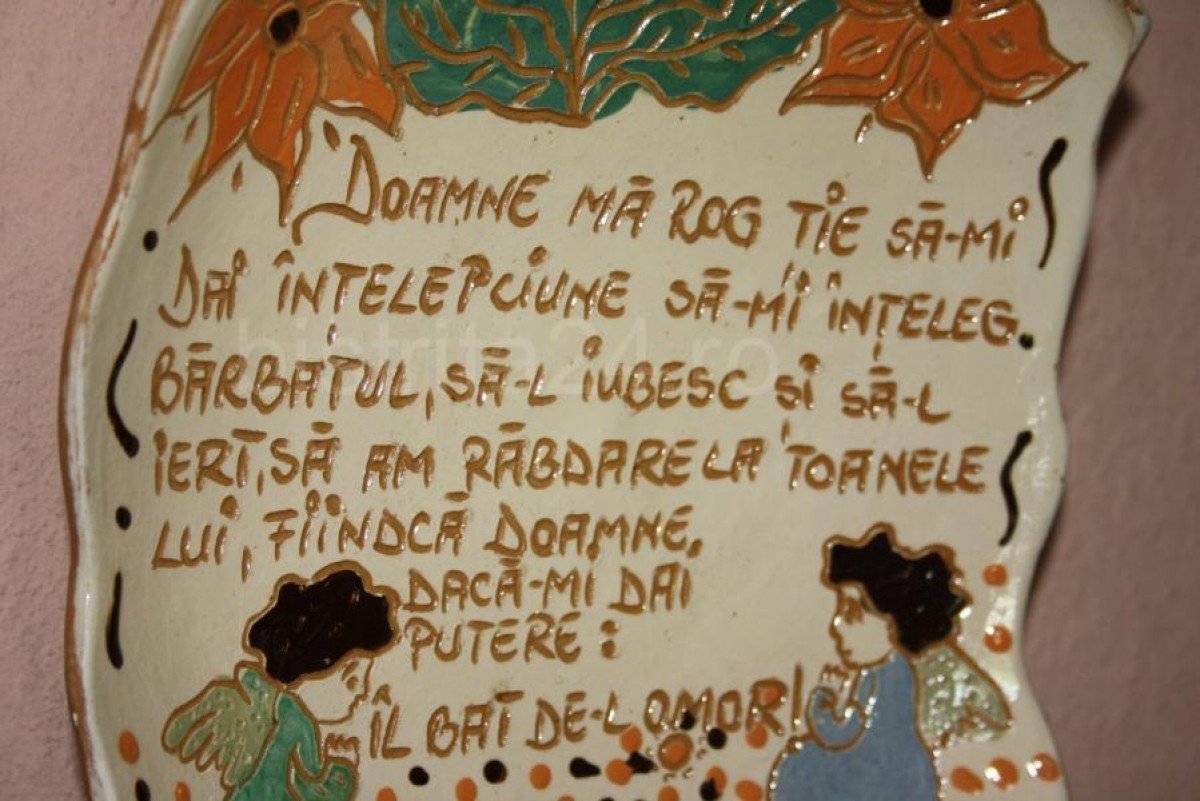 DOAMNE MĂ ROG TIE SĂ-MI
DAI ÎNȚELEPCIUNE SĂ-MI ÎNȚELEG
BĂRBATUL, SĂ-L IUBESC ȘI SĂ-L
IERT, SĂ AM RĂBDARE LA TOANELE
LUI, FIINDCĂ DOAMNE,
DACĂ-MI DAI
PUTERE:
ÎL BAT DE-L OMOR!
bistrita24.ro